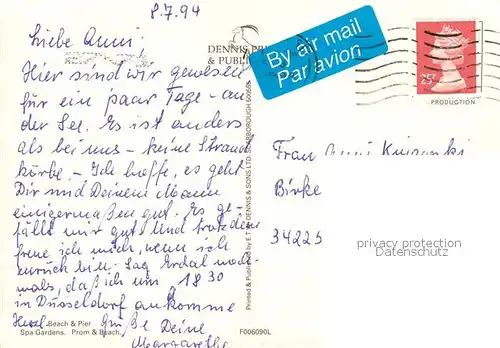 8.7.94
Liebe Anni!
Hier sind wir gewesen
für ein paar Tage - an
der See. Es ist anders
als bei uns - keine Strand
körbe - Ich hoffe, es geht
Dir und Deinem Mann
einigermaßen gut. Es ge-
fällt mir gut. Und trotzdem
freue ich mich, wenn ich
zurück bin. Sag Erdal noch-
mals, daß ich um 1830
in Düsseldorf ankomme
Herzl. Grüße Deine
Margarethe
Beach & Pier
Spa Gardens. Prom & Beach.
F006090L
DENNIS
& PUBLI
Printed & Published by E.T.W. DENNIS & SONS LTD. SCARBOROUGH
By air mail
Par avion
25P
PRODUCTION
Frau Anni
Birke
34225
privacy protection
Datenschutz